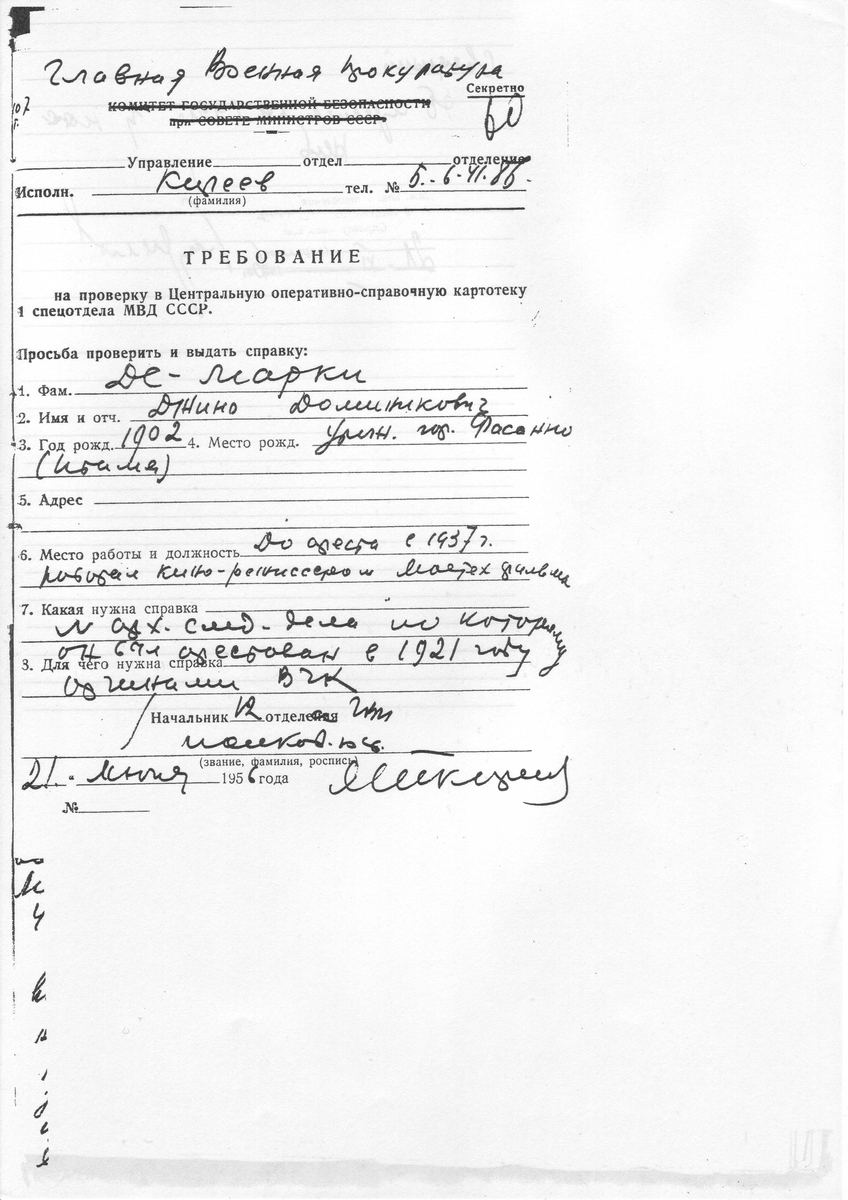 Главная Военная прокуратура
Секретно
КОМИТЕТ ГОСУДАРСТВЕННОЙ БЕЗОПАСНОСТИ
при СОВЕТЕ МИНИСТРОВ СССР
60
Управление отдел отделение
Исполн. Киреев тел. № 5-6-41-86.
(фамилия)
ТРЕБОВАНИЕ
на проверку в Центральную оперативно-справочную картотеку
1 спецотдела МВД СССР.
Просьба проверить и выдать справку:
1. Фам. Де-Марки
2. Имя и отч. Джино Доминикович
3. Год рожд. 1902 4. Место рожд. урож. гор. Фасанно
(Италия)
5. Адрес
6. Место работы и должность До ареста в 1937 г.
работал кино-режиссером Мостехфильма
7. Какая нужна справка
№ арх. след. дела по которому
он был арестован в 1921 году
8. Для чего нужна справка
органами ВЧК
Начальник отдела ГВП
полков. юст.
(звание, фамилия, роспись)
21 июня 1956 года
№